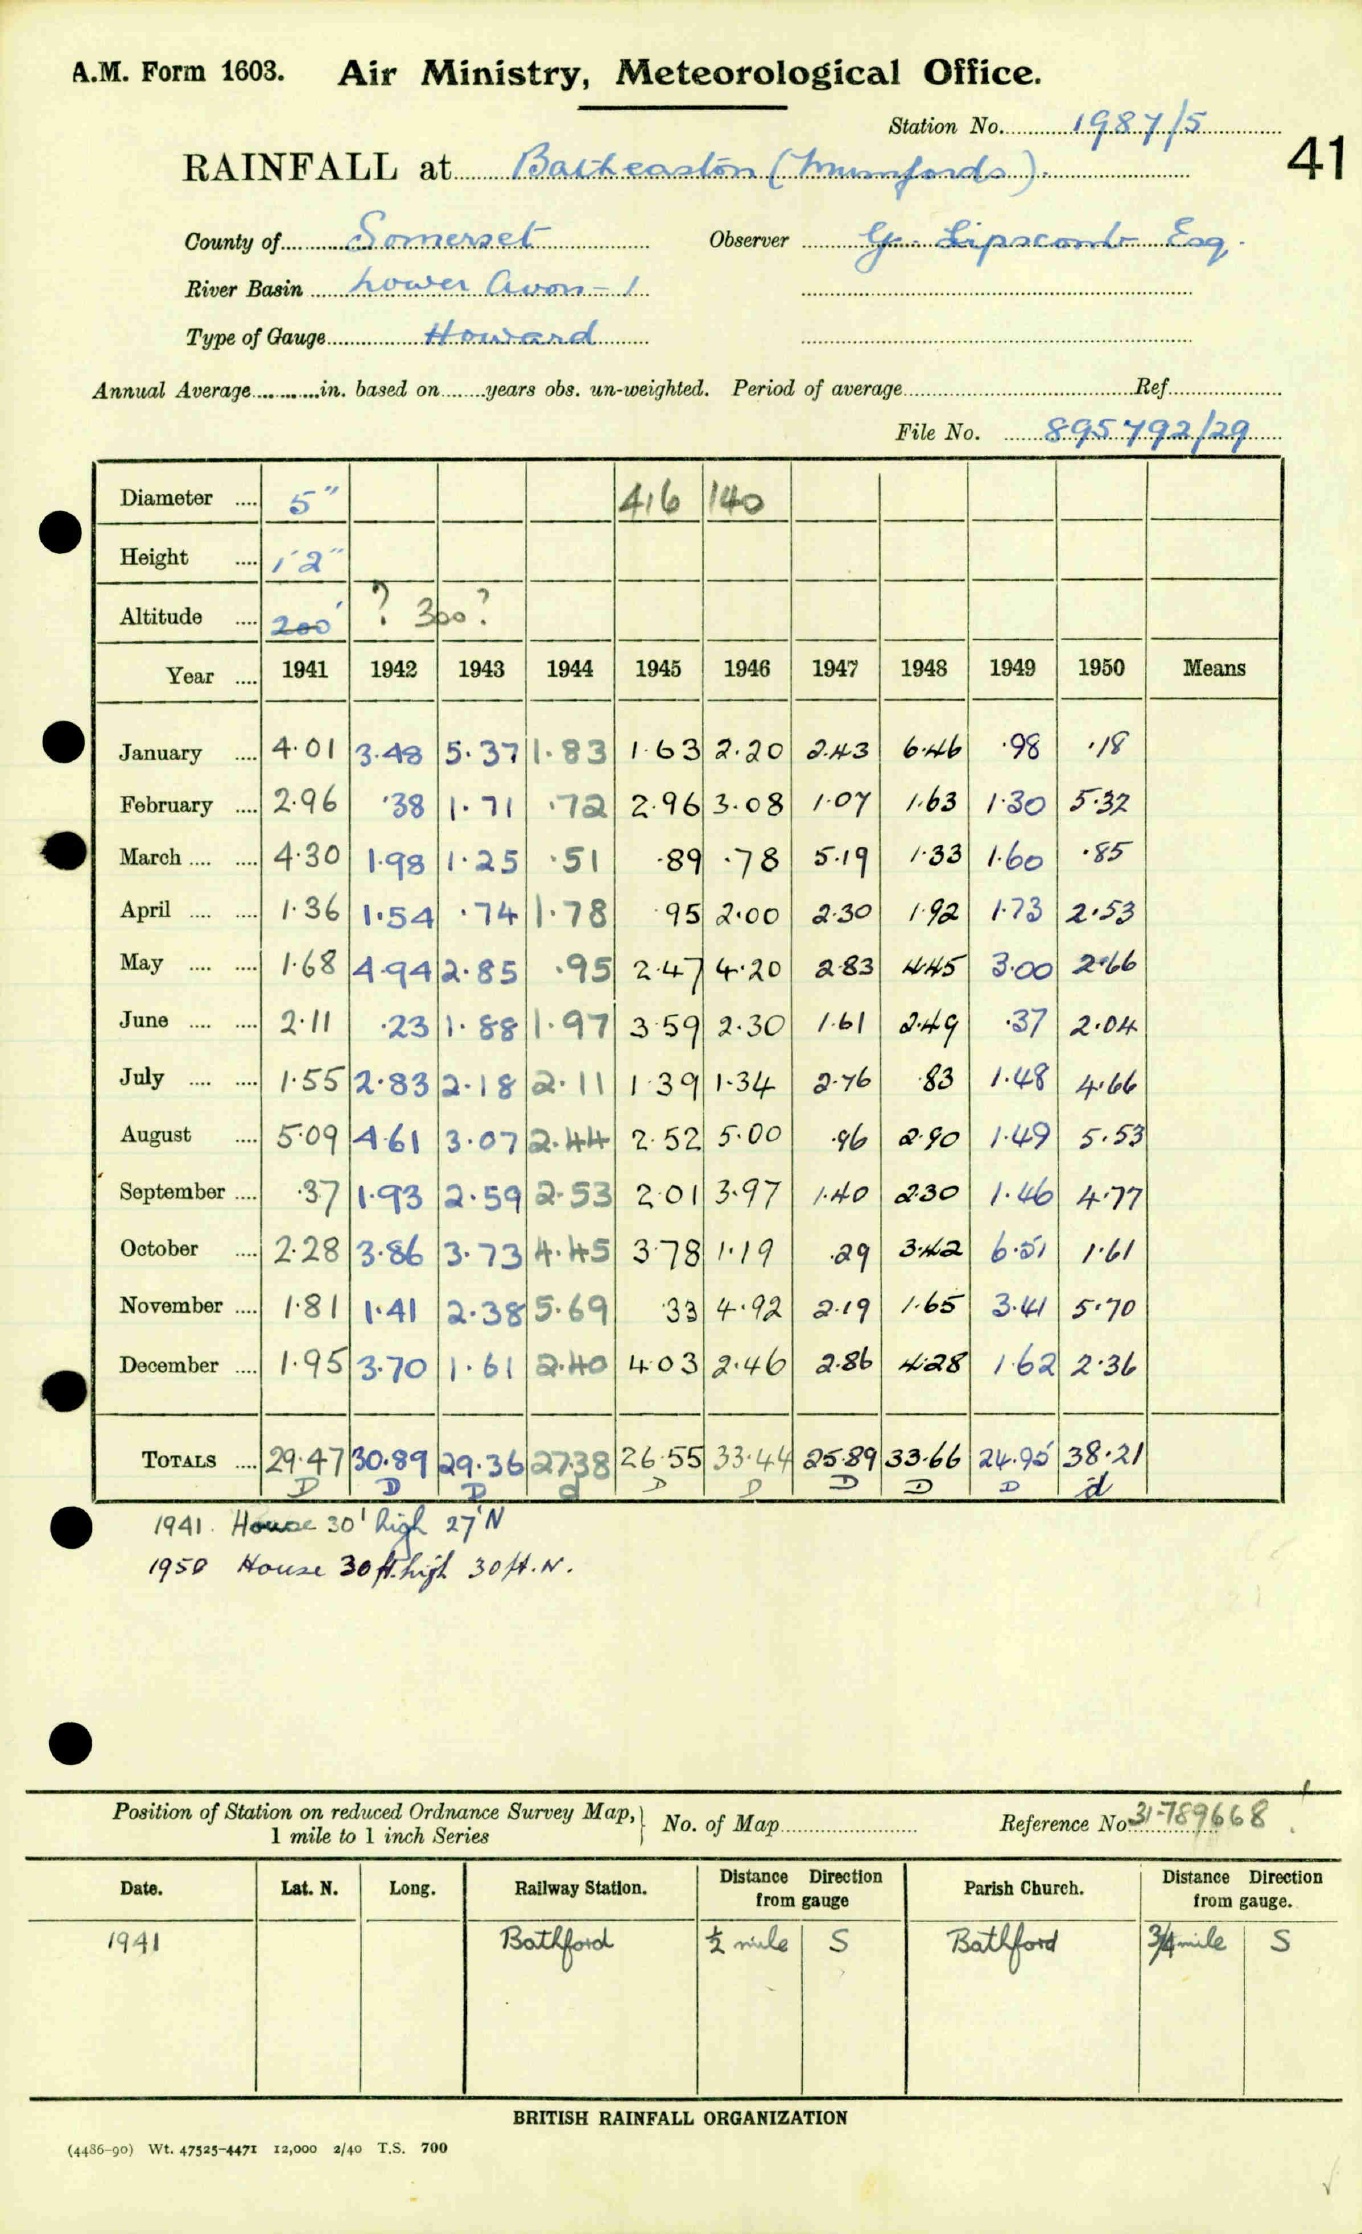 A.M. Form 1603. Air Ministry, Meteorological Office.
Station No. 1987/5
41
RAINFALL at Batheaston (Mumfords).
County of Somerset Observer G. Lipscomb Esq.
River Basin Lower Avon - 1
Type of Gauge Howard
Annual Average in. based on years obs. un-weighted. Period of average Ref
File No. 895792/29
Diameter 5" 416 140
Height 1'2"
Altitude 200' ? 300?
Year 1941 1942 1943 1944 1945 1946 1947 1948 1949 1950 Means
January 4.01 3.48 5.37 1.83 1.63 2.20 2.43 6.46 .98 .18
February 2.96 .38 1.71 .72 2.96 3.08 1.07 1.63 1.30 5.32
March 4.30 1.98 1.25 .51 .89 .78 5.19 1.33 1.60 .85
April 1.36 1.54 .74 1.78 .95 2.00 2.30 1.92 1.73 2.53
May 1.68 4.94 2.85 .95 2.47 4.20 2.83 4.45 3.00 2.66
June 2.11 .23 1.88 1.97 3.59 2.30 1.61 2.49 .37 2.04
July 1.55 2.83 2.18 2.11 1.39 1.34 2.76 .83 1.48 4.66
August 5.09 4.61 3.07 2.44 2.52 5.00 .96 2.90 1.49 5.53
September .37 1.93 2.59 2.53 2.01 3.97 1.40 2.30 1.46 4.77
October 2.28 3.86 3.73 4.45 3.78 1.19 .29 3.42 6.51 1.61
November 1.81 1.41 2.38 5.69 .33 4.92 2.19 1.65 3.41 5.70
December 1.95 3.70 1.61 2.40 4.03 2.46 2.86 4.28 1.62 2.36
TOTALS 29.47 30.89 29.36 27.38 26.55 33.44 25.89 33.66 24.95 38.21
D D D d D D D D D d
1941. House 30' high 27' N
1950 House 30 ft. high 30 ft. N.
Position of Station on reduced Ordnance Survey Map, 1 mile to 1 inch Series } No. of Map Reference No 31-789668
Date. Lat. N. Long. Railway Station. Distance Direction from gauge Parish Church. Distance Direction from gauge.
1941 Bathford ½ mile S Bathford ¾ mile S
BRITISH RAINFALL ORGANIZATION
(4486-90) Wt. 47525-4471 12,000 2/40 T.S. 700